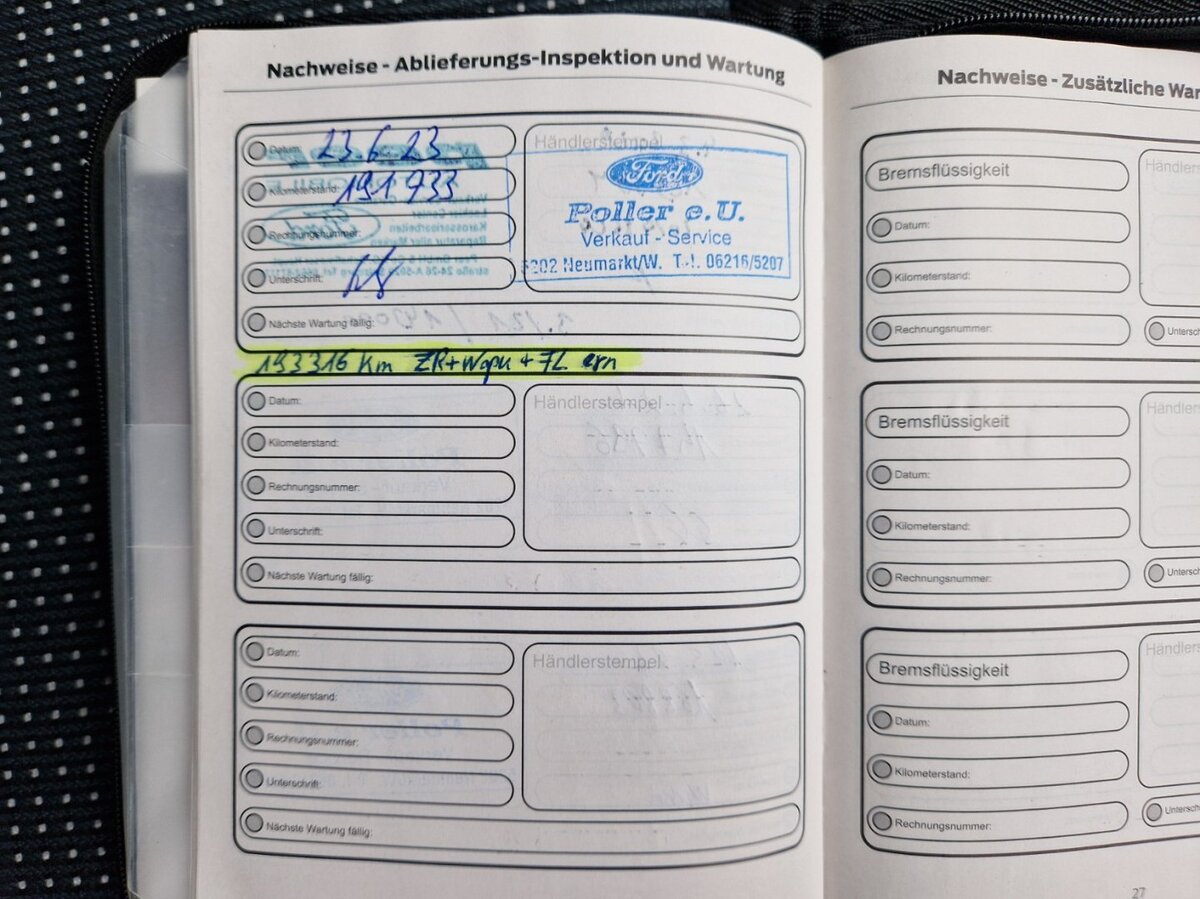 Nachweise - Ablieferungs-Inspektion und Wartung
Datum: 23.6.23
Kilometerstand: 191 933
Rechnungsnummer:
Unterschrift:
Händlerstempel
Ford
Poller e.U.
Verkauf - Service
5202 Neumarkt/W. Tel. 06216/5207
Nächste Wartung fällig:
193316 Km ZR+Wapu + 7L ern
Datum:
Kilometerstand:
Rechnungsnummer:
Unterschrift:
Händlerstempel
Nächste Wartung fällig:
Datum:
Kilometerstand:
Rechnungsnummer:
Unterschrift:
Händlerstempel
Nächste Wartung fällig:
Nachweise - Zusätzliche War
Bremsflüssigkeit
Händlers
Datum:
Kilometerstand:
Rechnungsnummer:
Untersch
Bremsflüssigkeit
Händlers
Datum:
Kilometerstand:
Rechnungsnummer:
Untersch
Bremsflüssigkeit
Händlers
Datum:
Kilometerstand:
Rechnungsnummer:
Untersch
27